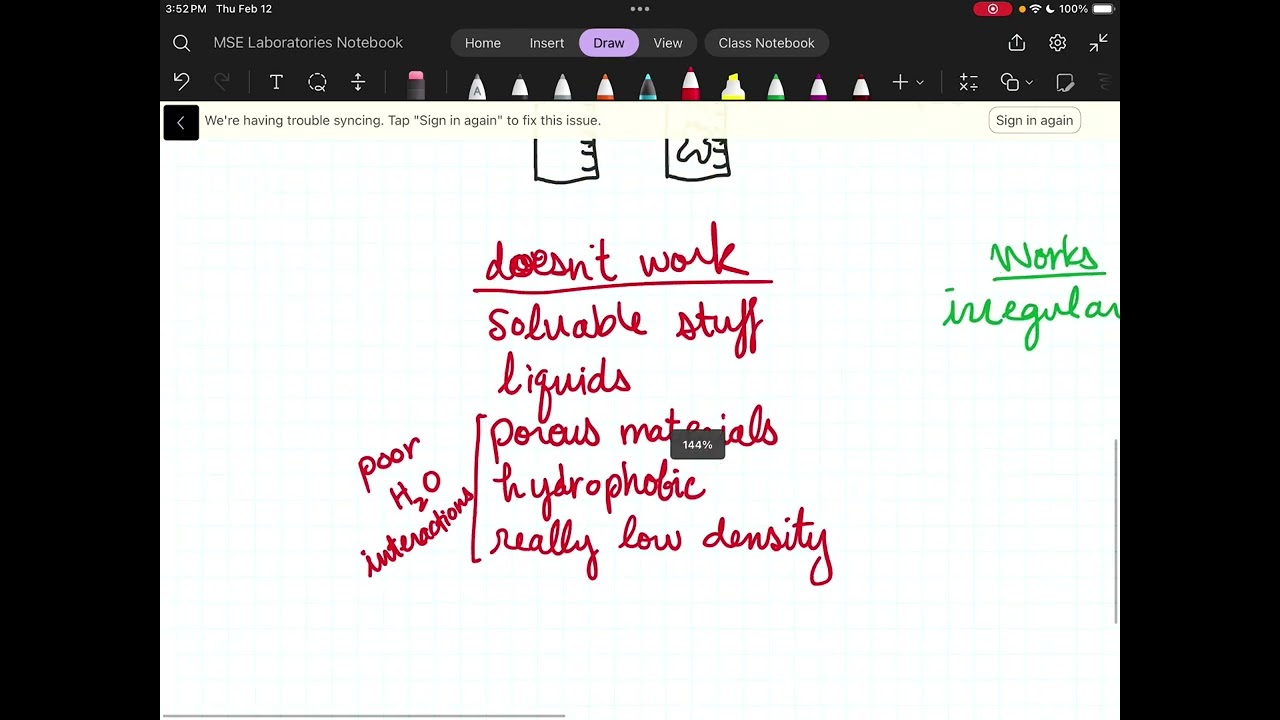 3:52 PM Thu Feb 12
100%
MSE Laboratories Notebook
Home Insert Draw View Class Notebook
T
A
We're having trouble syncing. Tap "Sign in again" to fix this issue.
Sign in again
doesn't work
soluable stuff
liquids
porous materials
hydrophobic
really low density
poor
H₂O
interactions
144%
Works
irregular